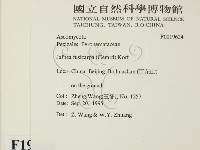 國立自然科學博物館
NATIONAL MUSEUM OF NATURAL SCIENCE
TAICHUNG, TAIWAN, R.O.CHINA
Ascomycota F0019624
Pezizales Pyronemataceae
Korf
Loc: China, Beijing,
on the ground
Col: Zheng Wang No. 1557
Date: Sep. 20, 1995
Det: Z. Wang & W.Y. Zhuang
F19